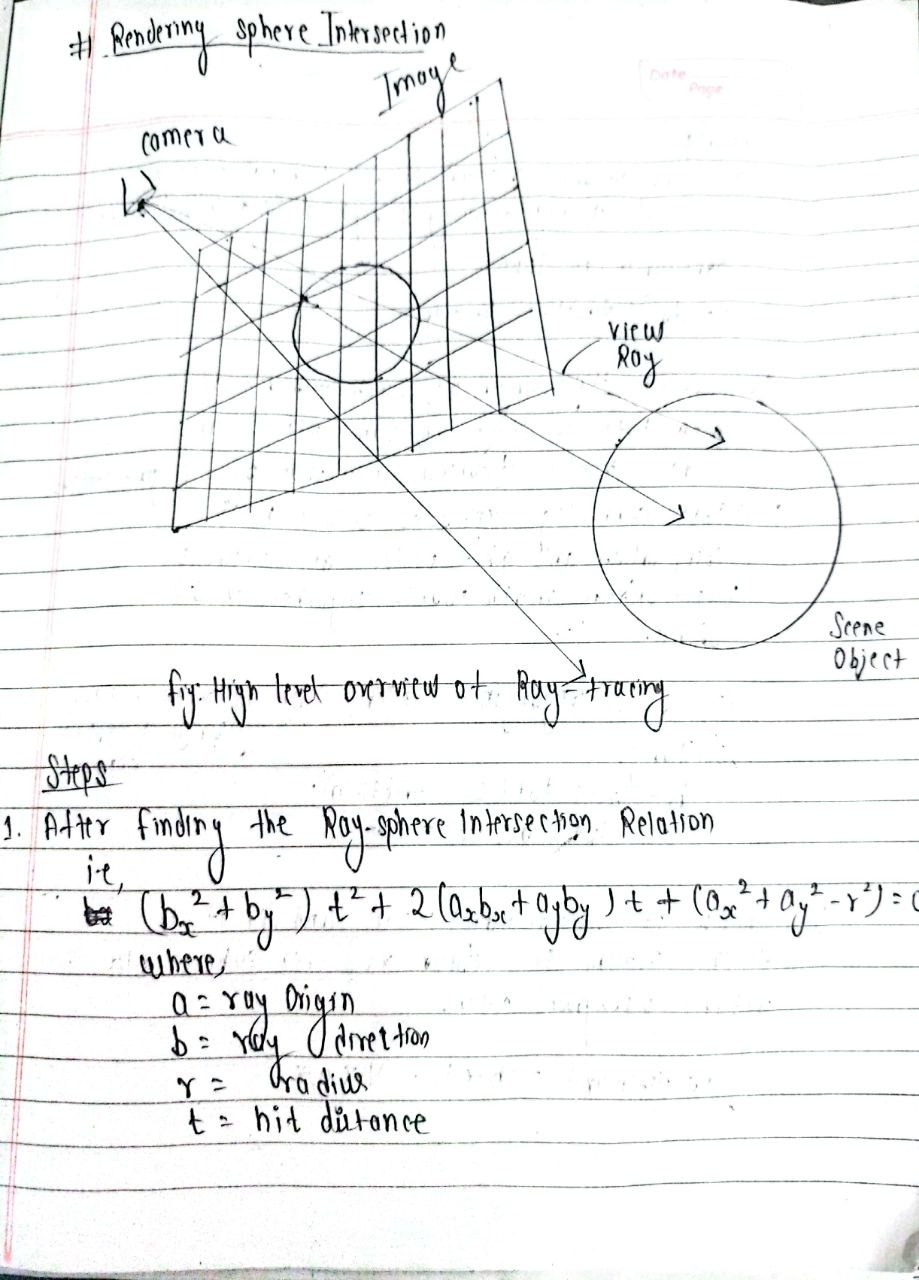 # Rendering sphere Intersection
Image
Date
Page
camera
View
Ray
Scene
Object
fig: High level overview of Ray-tracing
Steps
1. After finding the Ray-sphere Intersection Relation
i.e,
(bx² + by²) t² + 2(axbx + ayby) t + (ax² + ay² - r²) = 0
where,
a = ray Origin
b = ray direction
r = radius
t = hit distance